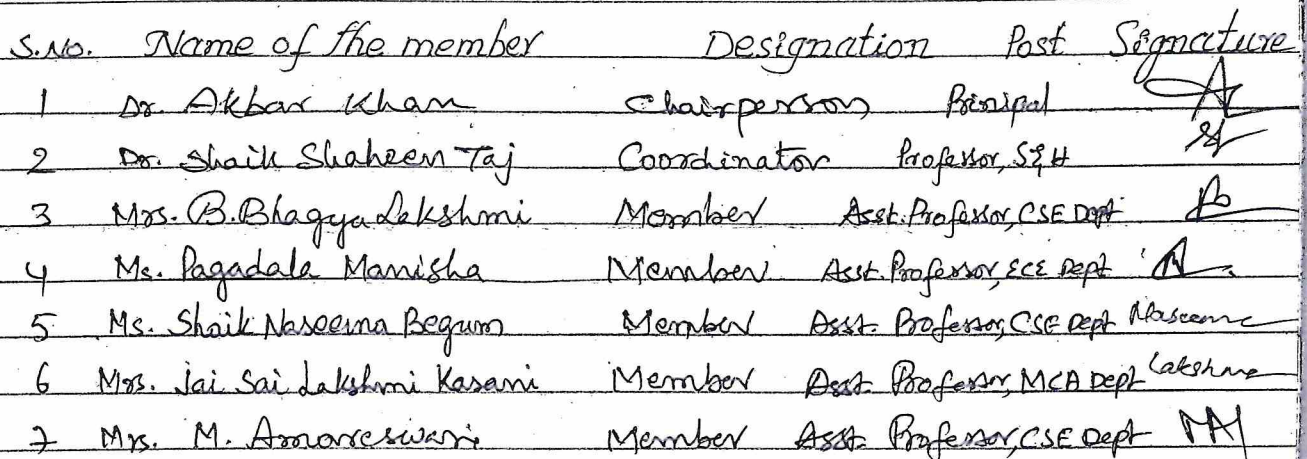 S.No. Name of the member Designation Post Signature
1 Dr. Akbar Khan Chairperson Prinipal
2 Dr. Shaik Shaheen Taj Coordinator Professor, S&H
3 Mrs. B. Bhagya Lakshmi Member Asst. Professor, CSE Dept
4 Ms. Pagadala Manisha Member Asst. Professor, ECE Dept
5 Ms. Shaik Naseema Begum Member Asst. Professor, CSE Dept Naseema
6 Mrs. Jai Sai Lakshmi Kasani Member Asst. Professor, MCA Dept Lakshme
7 Mrs. M. Amareswari Member Asst. Professor, CSE Dept